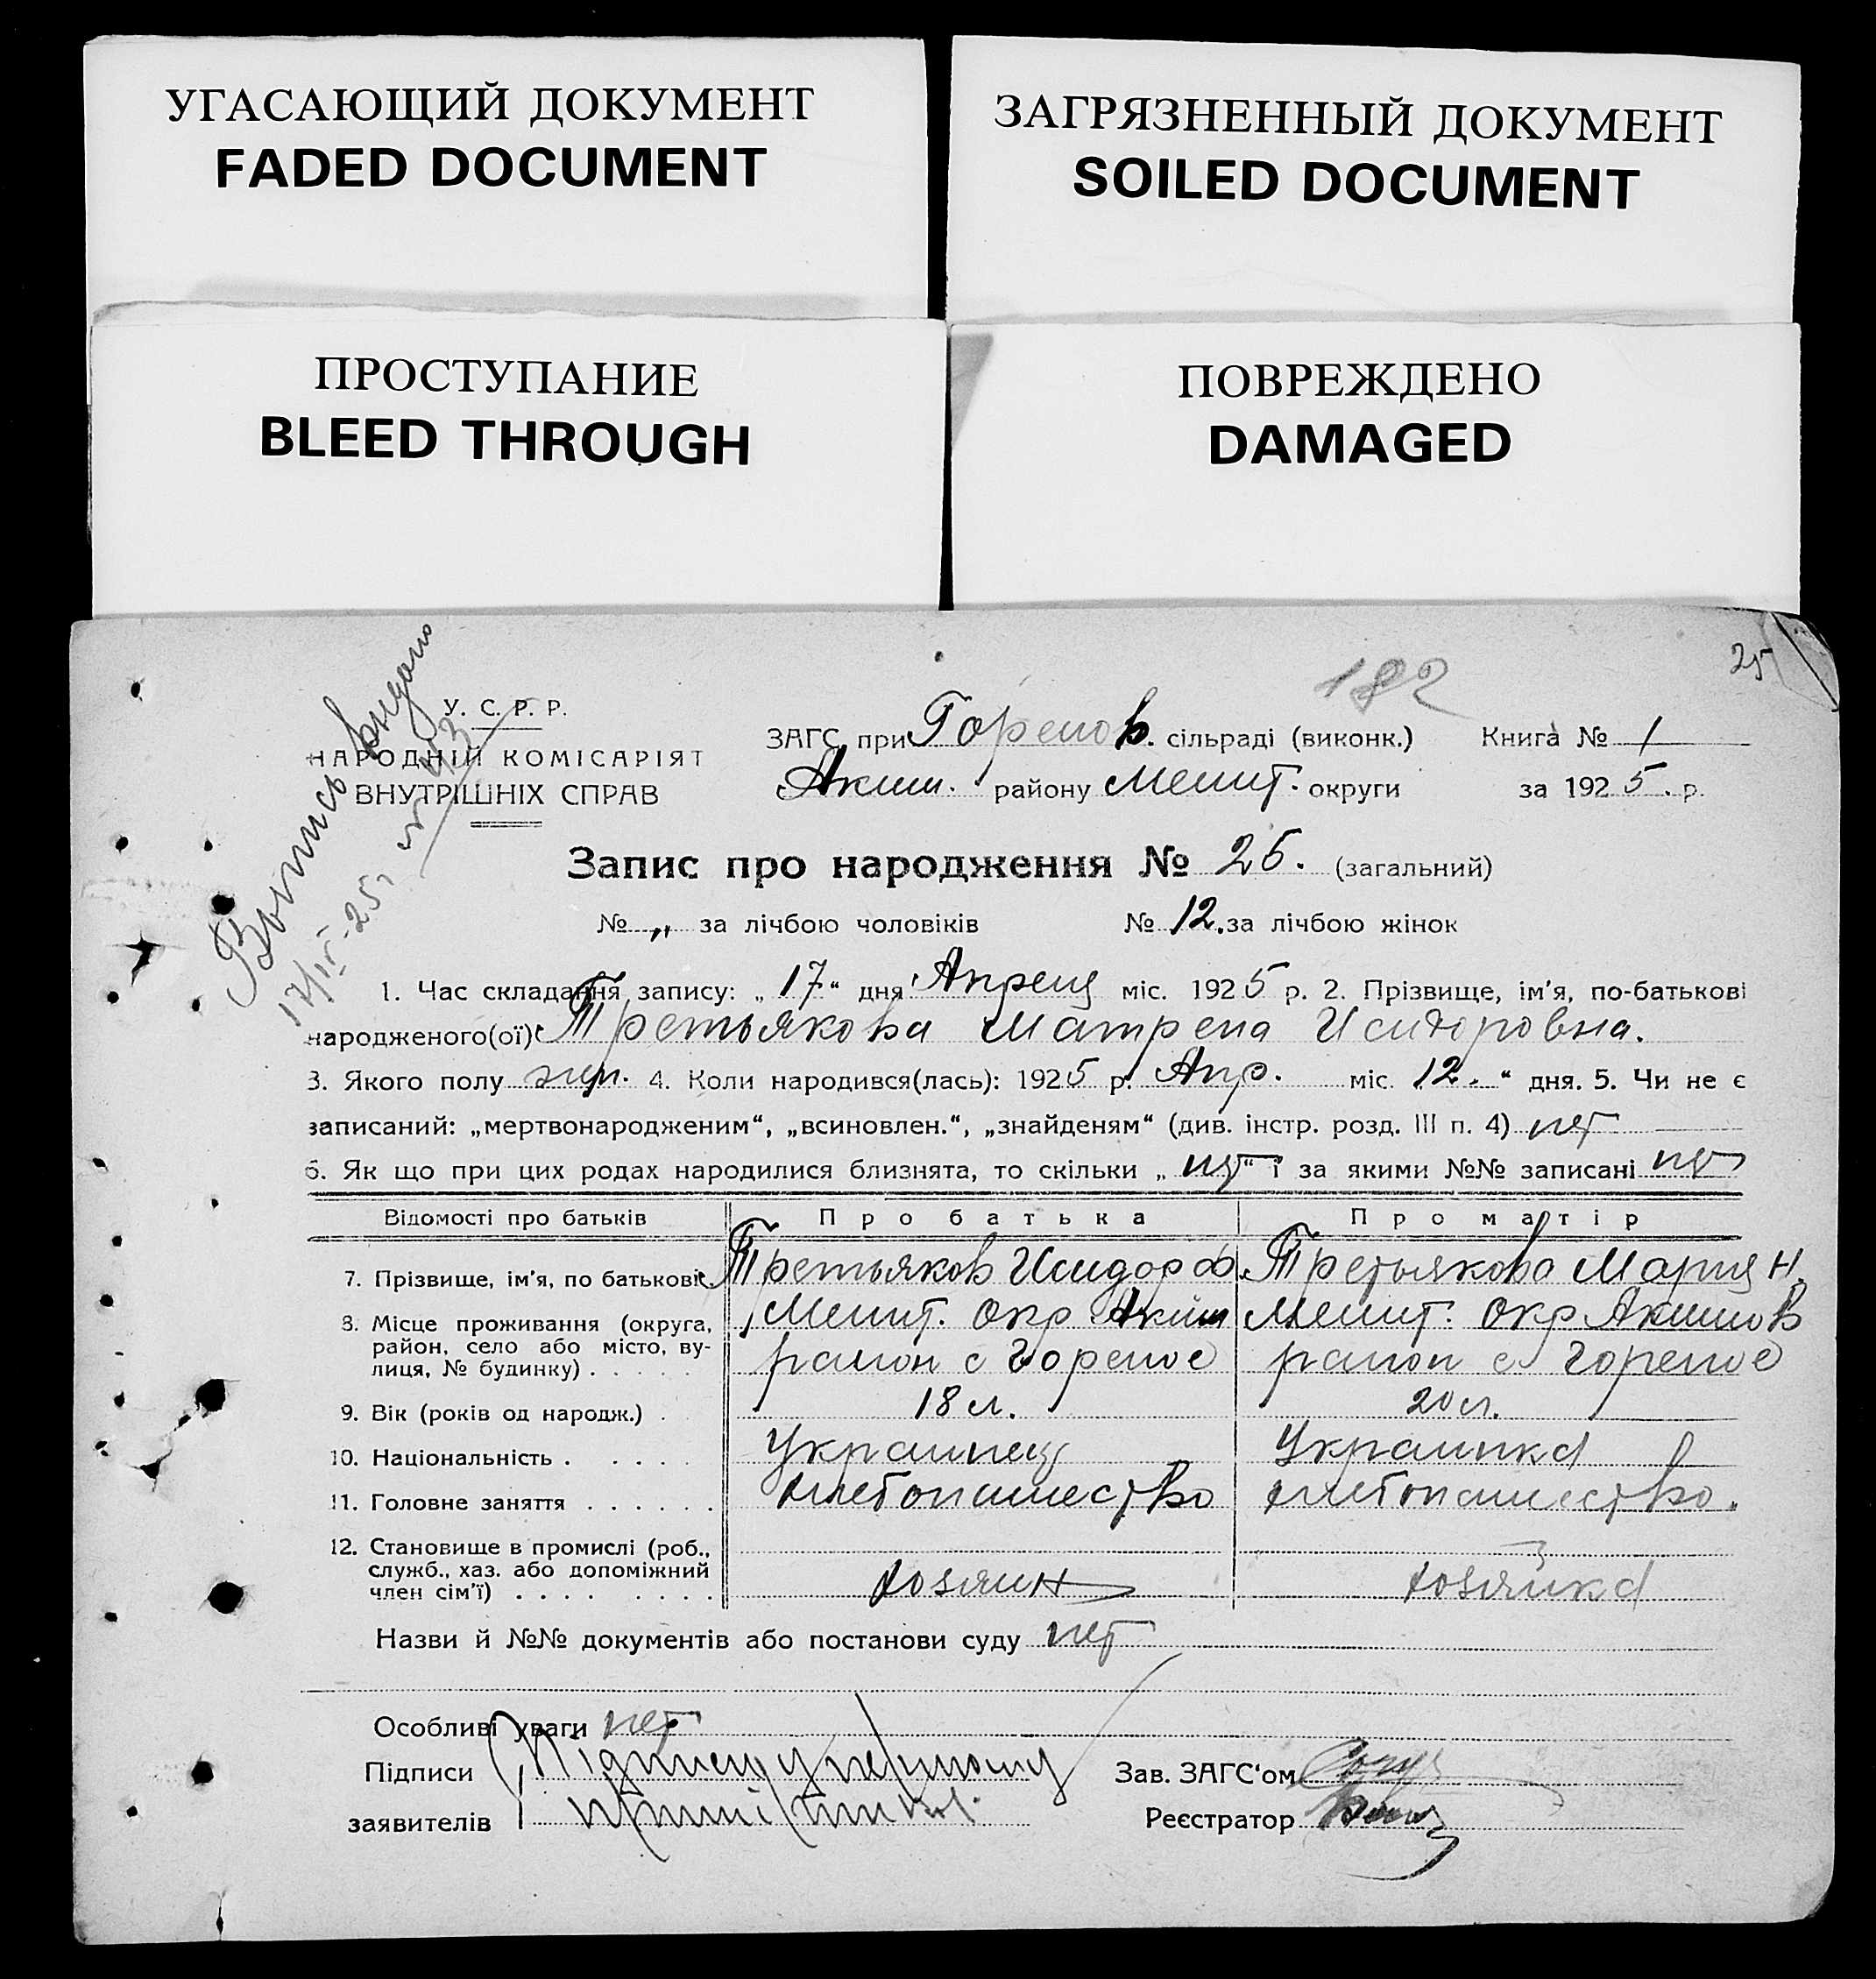 УГАСАЮЩИЙ ДОКУМЕНТ
FADED DOCUMENT
ЗАГРЯЗНЕННЫЙ ДОКУМЕНТ
SOILED DOCUMENT
ПРОСТУПАНИЕ
BLEED THROUGH
ПОВРЕЖДЕНО
DAMAGED
25
182
Выпись выдано
17/IV-25 г № 43
У. С. Р. Р.
НАРОДНІЙ КОМІСАРІЯТ
ВНУТРІШНІХ СПРАВ
ЗАГС при Горенов. сільраді (виконк.) Книга № 1
Аким. району Мелит. округи за 1925. р.
Запис про народження № 25. (загальний)
№ „ за лічбою чоловіків № 12. за лічбою жінок
1. Час складання запису: „17“ дня Апреля міс. 1925 р. 2. Прізвище, ім'я, по-батькові
народженого(ої) Третьякова Матрена Исидоровна.
3. Якого полу жен. 4. Коли народився(лась): 1925 р. Апр. міс. 12. “ дня. 5. Чи не є
записаний: „мертвонародженим“, „всиновлен.“, „знайденям“ (див. інстр. розд. III п. 4) нет
6. Як що при цих родах народилися близнята, то скільки „нет“ і за якими №№ записані нет
Відомості про батьків Про батька Про матір
7. Прізвище, ім'я, по батькові Третьяков Исидор Ф. Третьякова Мария Н.
8. Місце проживання (округа, Мелит. Окр Аким Мелит. Окр Акимов
район, село або місто, ву- район с Горелое район с Горелое
лиця, № будинку) . . . . .
9. Вік (років од народж.) . 18 л. 20 л.
10. Національність . . . . . Украинец Украинка
11. Головне заняття . . . . . . хлебопашество хлебопашество.
12. Становище в промислі (роб.,
служб., хаз. або допоміжний хозяин хозяйка
член сім'ї) . . . . . . . .
Назви й №№ документів або постанови суду нет
Особливі уваги нет
Підписи
Зав. ЗАГС'ом
заявителів
Реєстратор